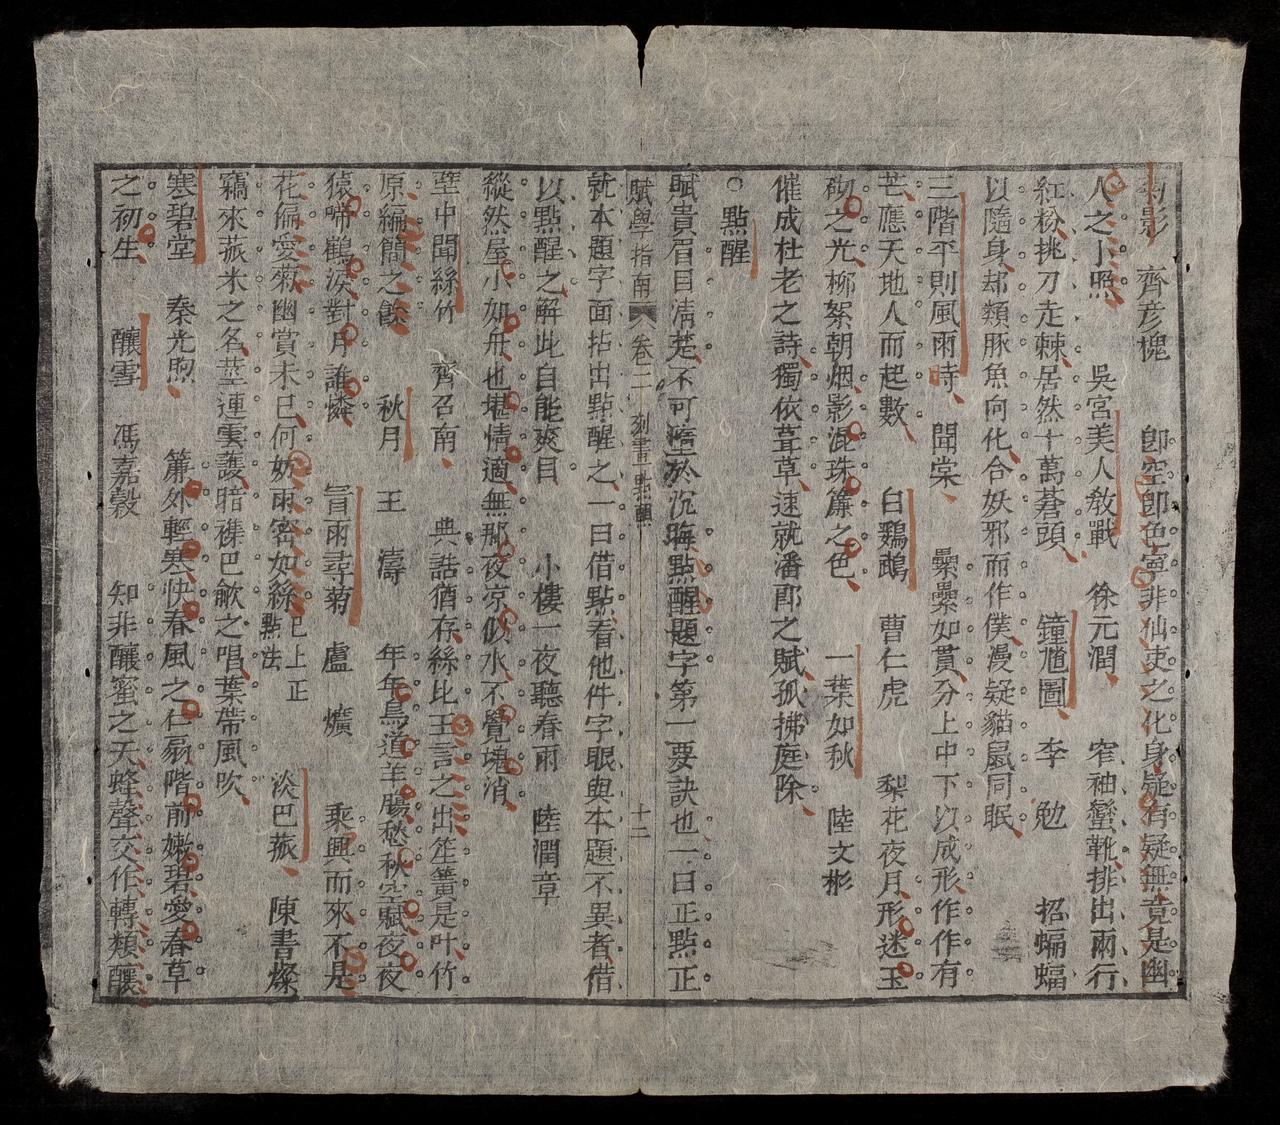 菊影　齊彥槐　卽空卽色寧非仙吏之化身疑有疑無竟是幽
人之小照　吳宮美人敎戰　徐元潤　窄袖蠻靴排出兩行
紅粉挑刀走棘居然十萬蒼頭　鐘馗圖　李　勉　招蝙蝠
以隨身却類豚魚向化合妖邪而作僕漫疑貓鼠同眠
三階平則風雨時　聞棠　纍纍如貫分上中下以成形作作有
芒應天地人而起數　白鸚鵡　曹仁虎　梨花夜月形迷玉
砌之光柳絮朝烟影混珠簾之色　一葉如秋　陸文彬
催成杜老之詩獨依葺草速就潘郎之賦孤拂庭除
○點醒
賦貴眉目淸楚不可墮於沉晦點醒題字第一要訣也一曰正點正
賦學指南　卷二　刻畫點醒　十二
就本題字面拈出點醒之一曰借點看他件字眼與本題不異者借
以點醒之解此自能爽目　小樓一夜聽春雨　陸潤章
縱然屋小如舟也堪情適無那夜凉似水不覺魂消
壁中聞絲竹　齊召南　典誥猶存絲比王言之出笙簧是叶竹
原編簡之餘　秋月　王　濤　年年鳥道羊腸愁秋空賦夜夜
猿啼鶴淚對月誰憐　冒雨尋菊　盧　爌　乘興而來不是
花偏愛菊幽賞未已何妨雨密如絲已上正點法　淡巴菰　陳書燦
竊來菰米之名莖連雲護暗襍巴歈之唱葉帶風吹
寒碧堂　秦光煦　簾外輕寒快春風之仁扇階前嫩碧愛春草
之初生　釀雪　馮嘉穀　知非釀蜜之天蜂聲交作轉類釀